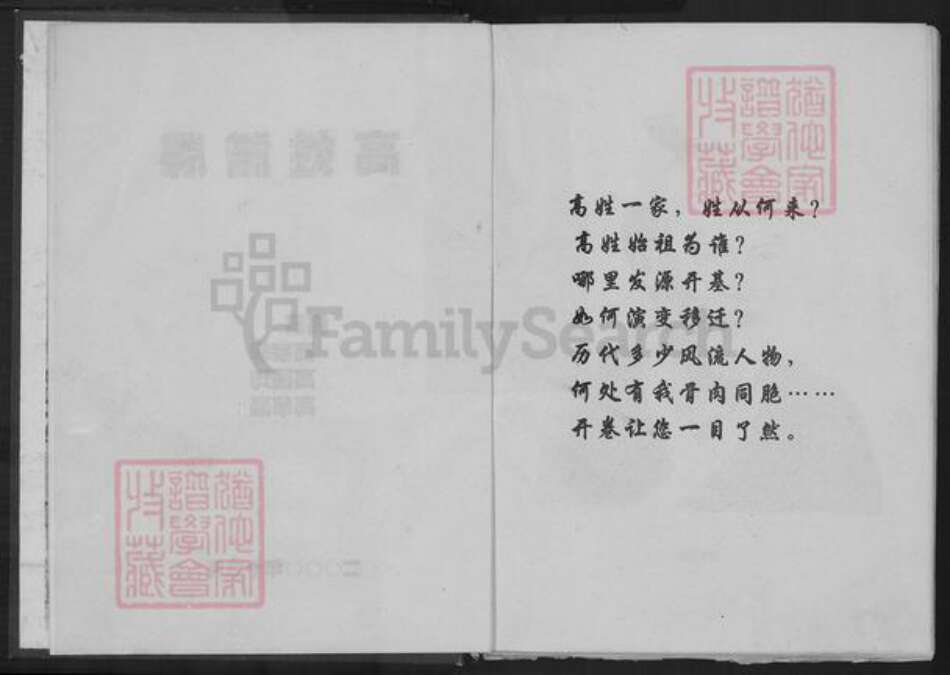 高姓一家，姓从何来？
高姓始祖为谁？
哪里发源开基？
如何演变移迁？
历代多少风流人物，
何处有我骨肉同胞……
开卷让您一目了然。
猶他家
譜學會
收藏
FamilySearch
猶他家
譜學會
收藏